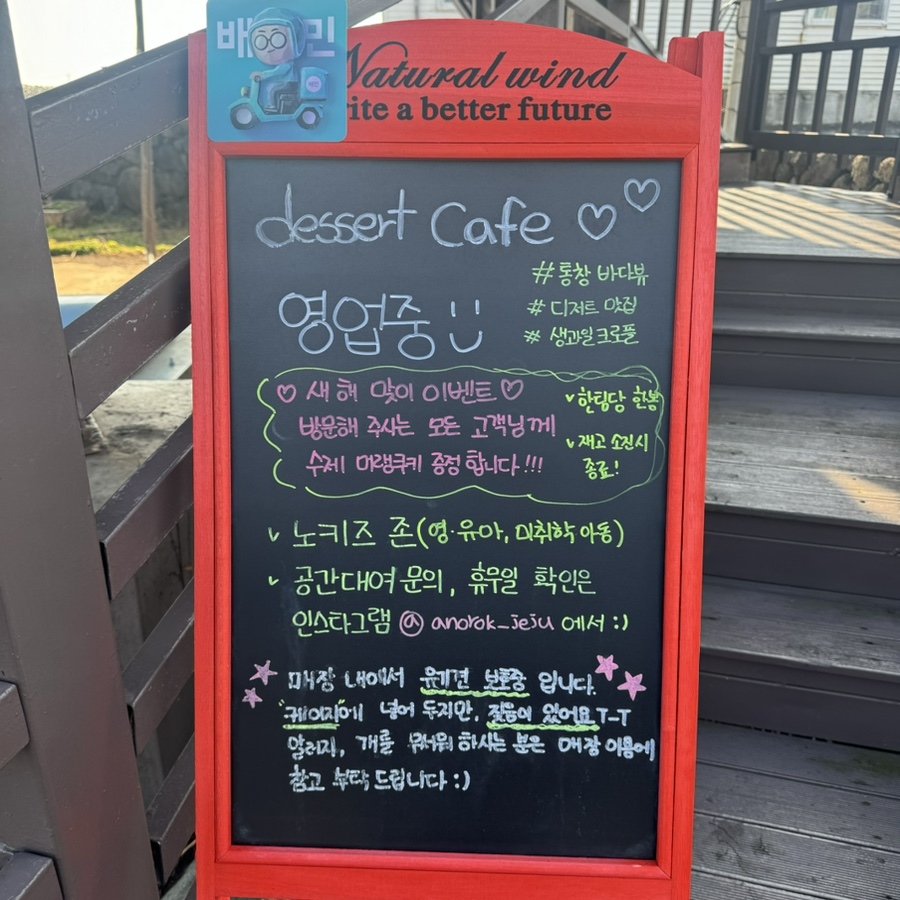 배민
Natural wind
ite a better future
dessert Cafe ♡♡
#통창 바다뷰
영업중
# 디저트 맛집
# 생과일크로플
♡ 새해 맞이 이벤트♡
방문해 주시는 모든 고객님께
수제 머랭쿠키 증정합니다!!!
한팀당 한봉
재고 소진시
종료!
노키즈 존(영·유아, 미취학 아동)
공간대여 문의, 휴무일 확인은
인스타그램 @ anorok_jeju 에서 :)
매장 내에서 유기견 보호중 입니다.
"케이지"에 넣어 두지만, 짖음이 있어요 T-T
알러지, 개를 무서워 하시는 분은 매장 이용에
참고 부탁드립니다 :)